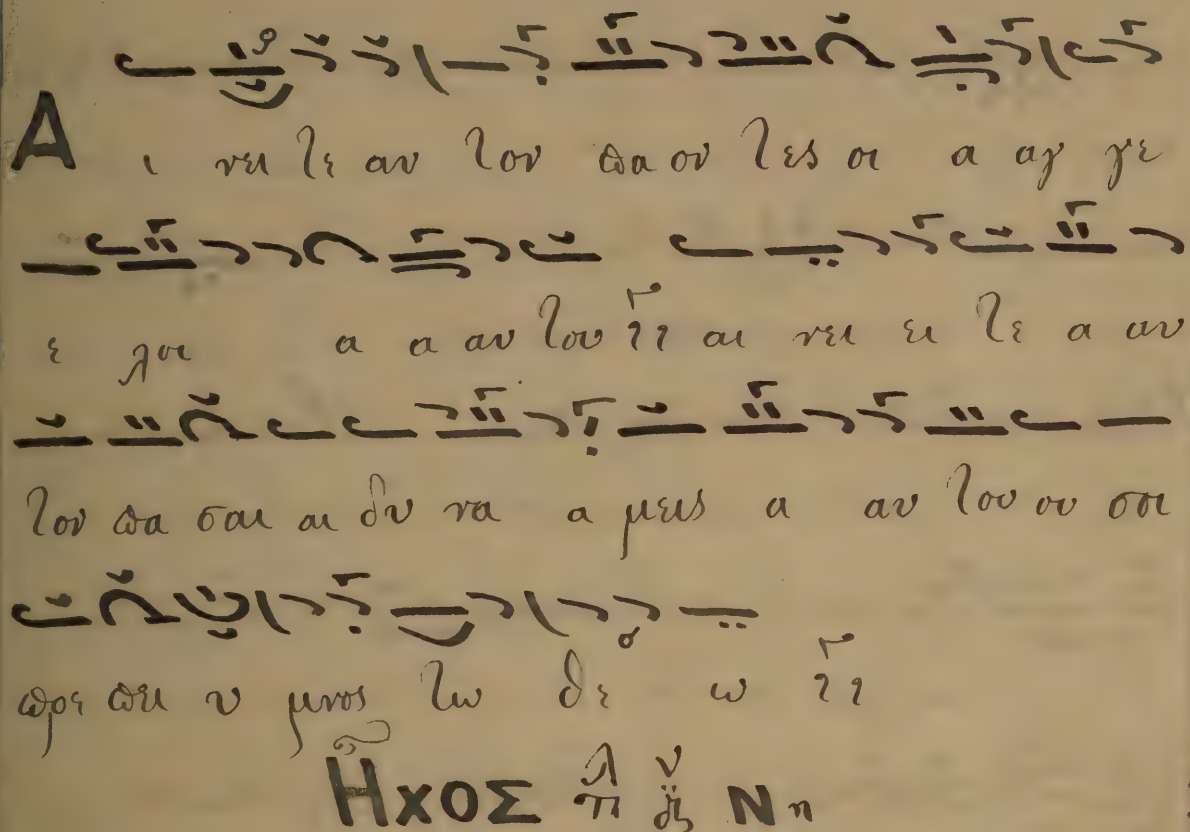 Α ι νει τε αυ τον πα ον τες οι α αγ γε
ε λοι α α αυ του αι νει ει τε α αυ
τον πα σαι αι δυ να α μεις α αυ του ου σοι
πρε πει υ μνος τω θε ω
Ηχος πλ δ Νη